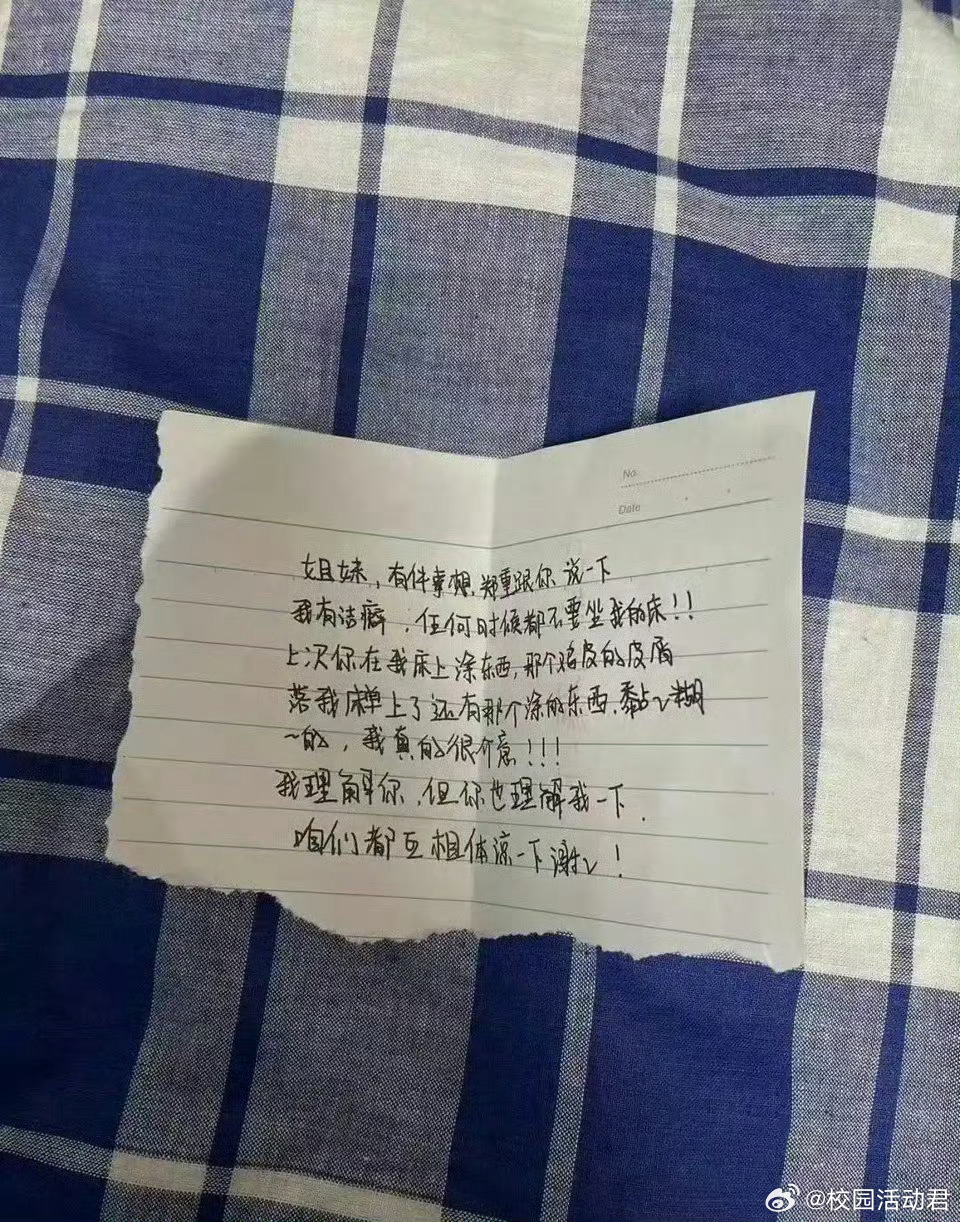 No.
Date
姐妹，有件事想郑重跟你说一下
我有洁癖，任何时候都不要坐我的床！！
上次你在我床上涂东西，那个鸡皮的皮屑
落我床单上了还有那个涂的东西，黏〃糊
〃的，我真的很介意！！！
我理解你，但你也理解我一下.
咱们都互相体谅一下谢〃！
@校园活动君